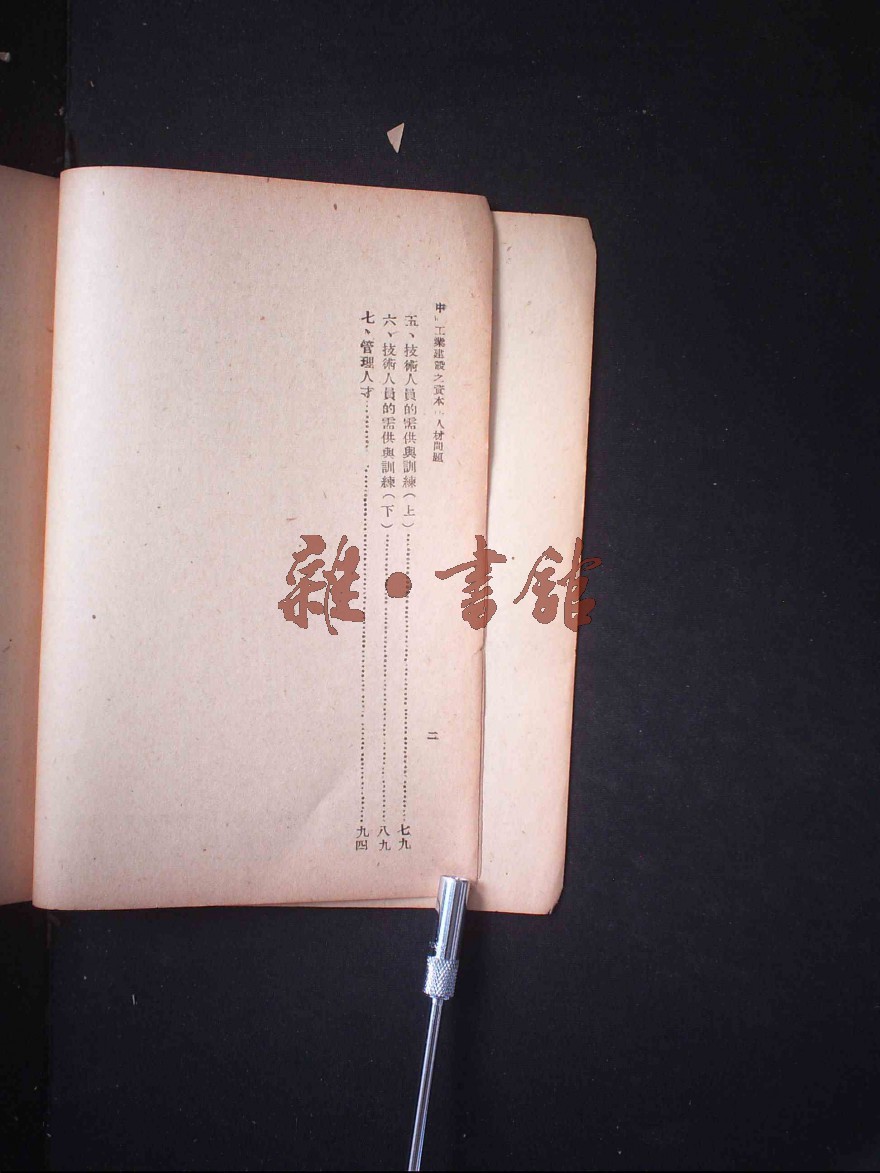 中國工業建設之資本與人材問題
二
五、技術人員的需供與訓練（上）……七九
六、技術人員的需供與訓練（下）……八九
七、管理人才……九四
雜•書館